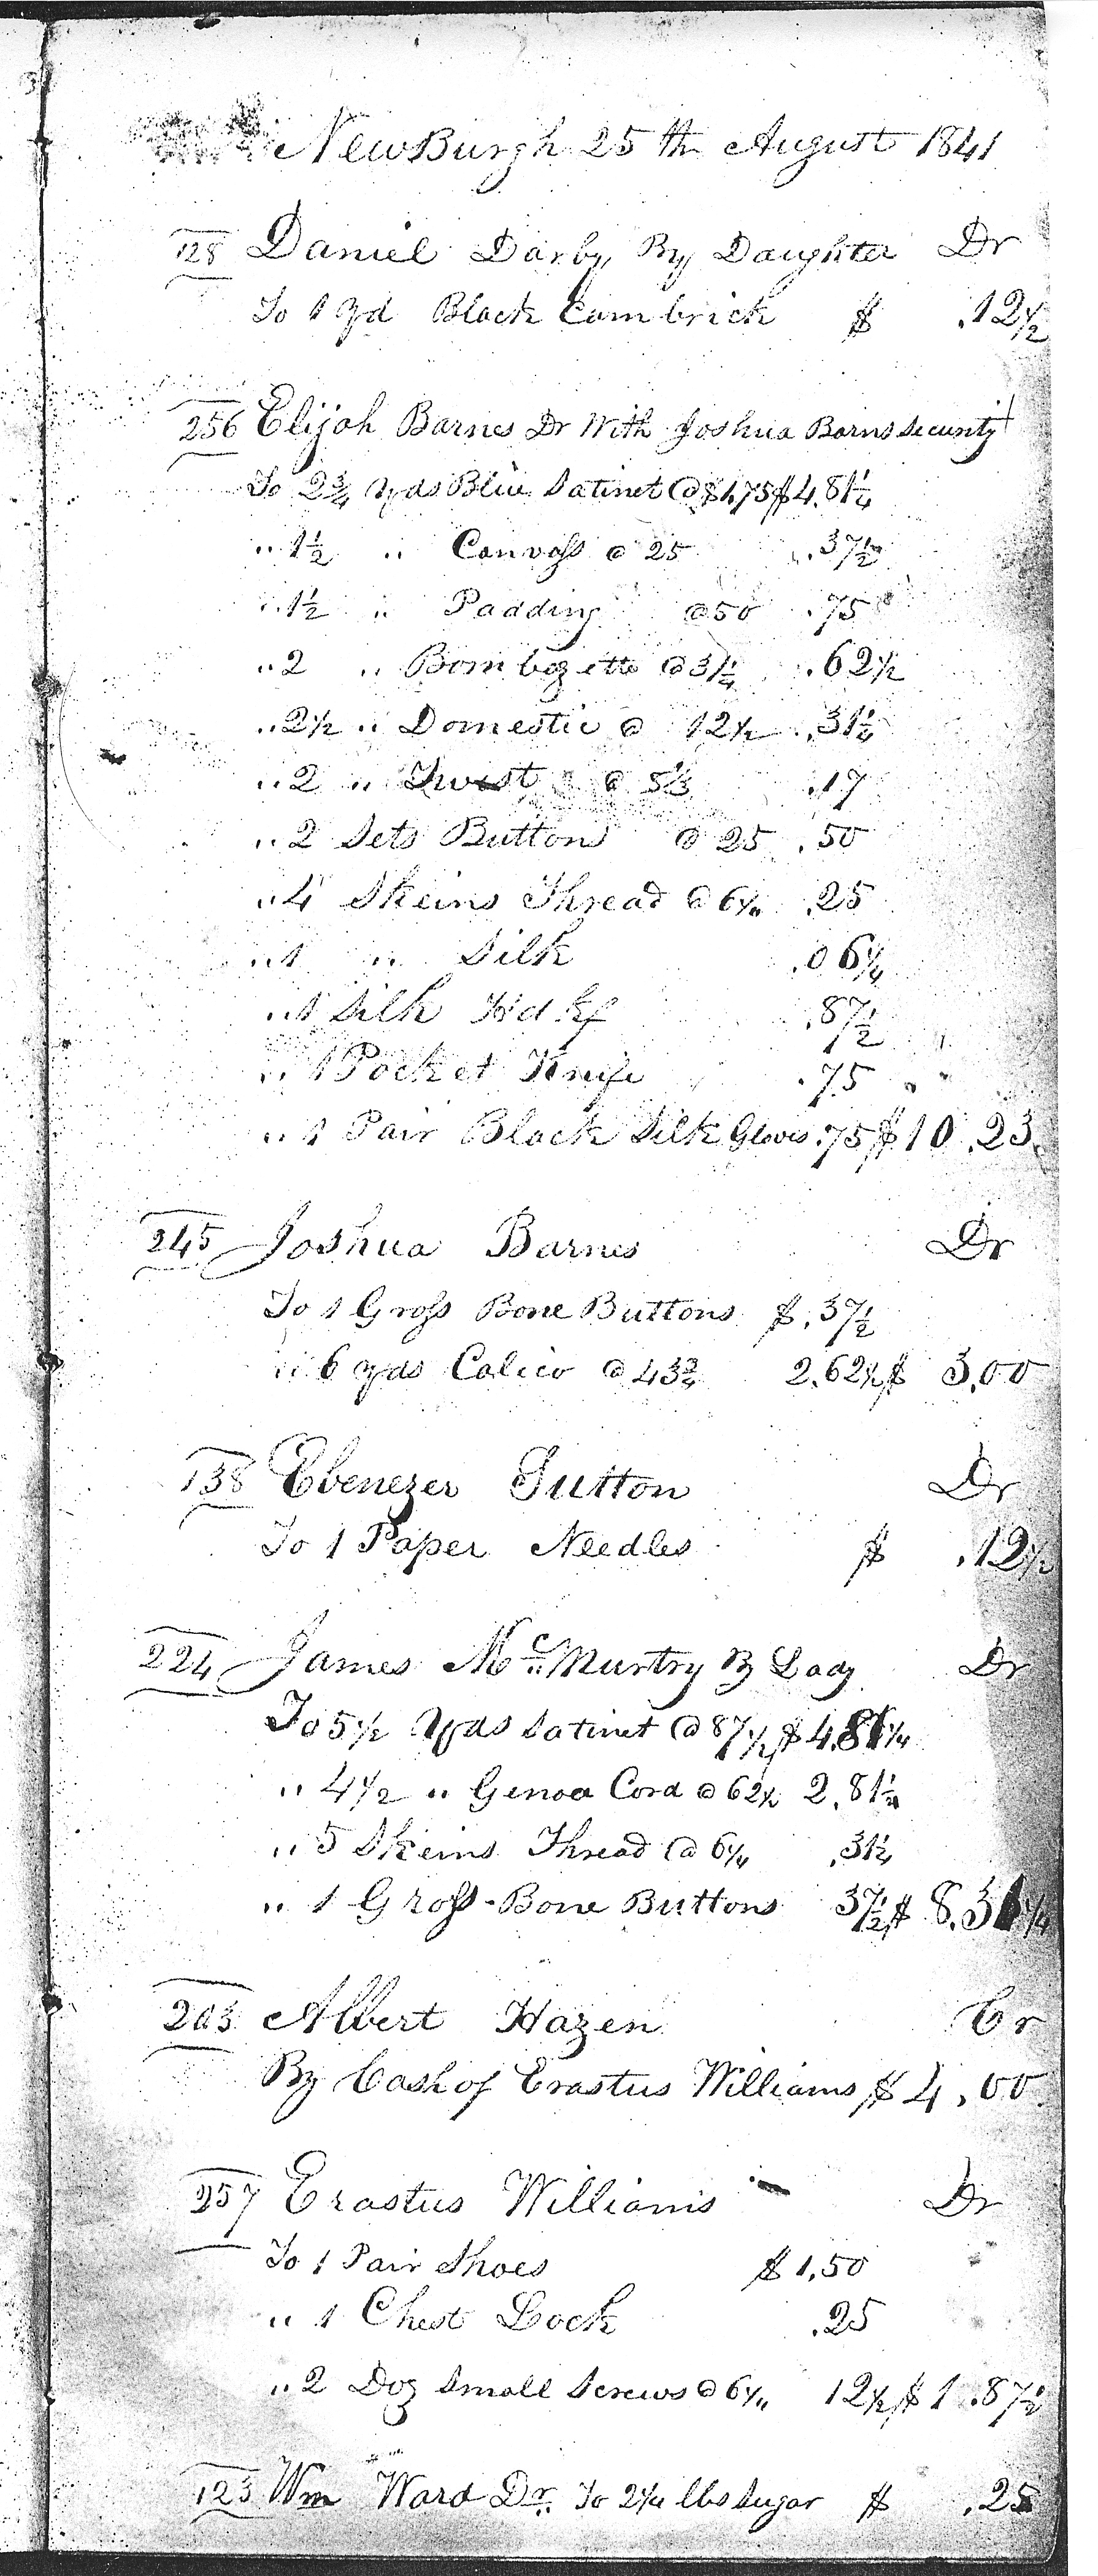 NewBurgh 25th August 1841
128 Daniel Darby By Daughter Dr
To 1 yd Black Cambrick $ .12½
256 Elijah Barnes Dr With Joshua Barns Security
To 2¾ Yds Blue Satinet @ $1.75 $4.81¼
" 1½ " Canvass @ 25 .37½
" 1½ " Padding @ 50 .75
" 2 " Bombazette @ 31¼ .62½
" 2½ " Domestic @ 12½ .31¼
" 2 " Twist @ 8⅓ .17
" 2 Sets Buttons @ 25 .50
" 4 Skeins Thread @ 6¼ .25
" 1 " Silk .06¼
" 1 Silk Hdkf .87½
" 1 Pocket Knife .75
" 1 Pair Black Silk Gloves .75 $10.23
245 Joshua Barnes Dr
To 1 Gross Bone Buttons $.37½
" 6 yds Calico @ 43¾ 2.62½ $ 3.00
138 Ebenezer Sutton Dr
To 1 Paper Needles $ .12½
224 James Mc Murtry By Lady Dr
To 5½ Yds Satinet @ 87½ $4.81¼
" 4½ " Genoa Cord @ 62½ 2.81¼
" 5 Skeins Thread @ 6¼ .31¼
" 1 Gross Bone Buttons 37½ $ 8.31¼
203 Albert Hazen Cr
By Cash of Erastus Williams $4.00
257 Erastus Williams Dr
To 1 Pair Shoes $1.50
" 1 Chest Lock .25
" 2 Doz Small Screws @ 6¼ 12½ $1.87½
123 Wm Ward Dr. To 2¼ lbs Sugar $ .25